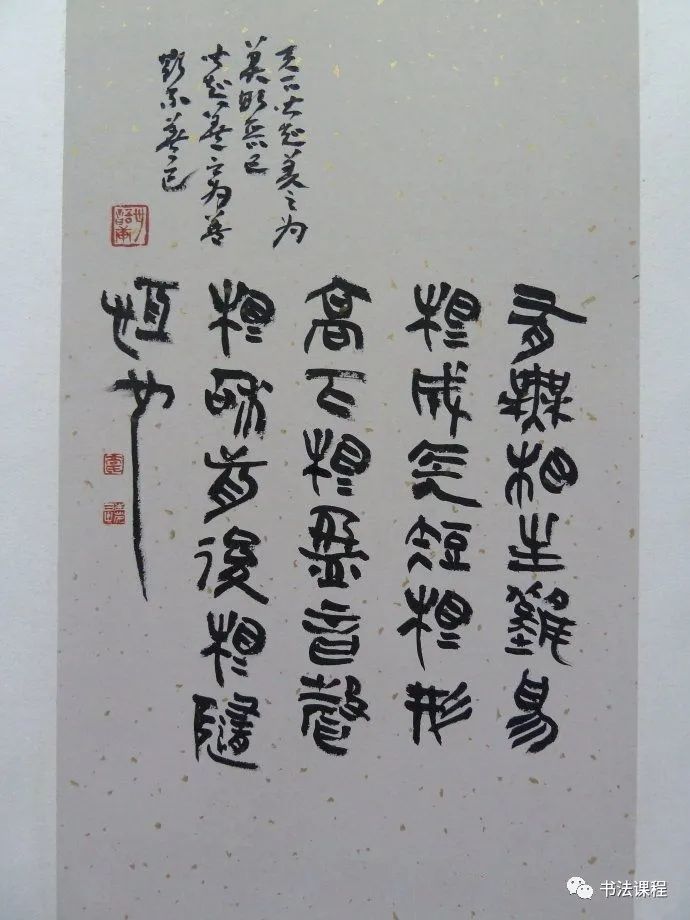 天下皆知美之为
美斯恶已
皆知善之为善
斯不善已
有無相生難易
相成長短相形
高下相盈音聲
相和前後相隨
恆也
书法课程